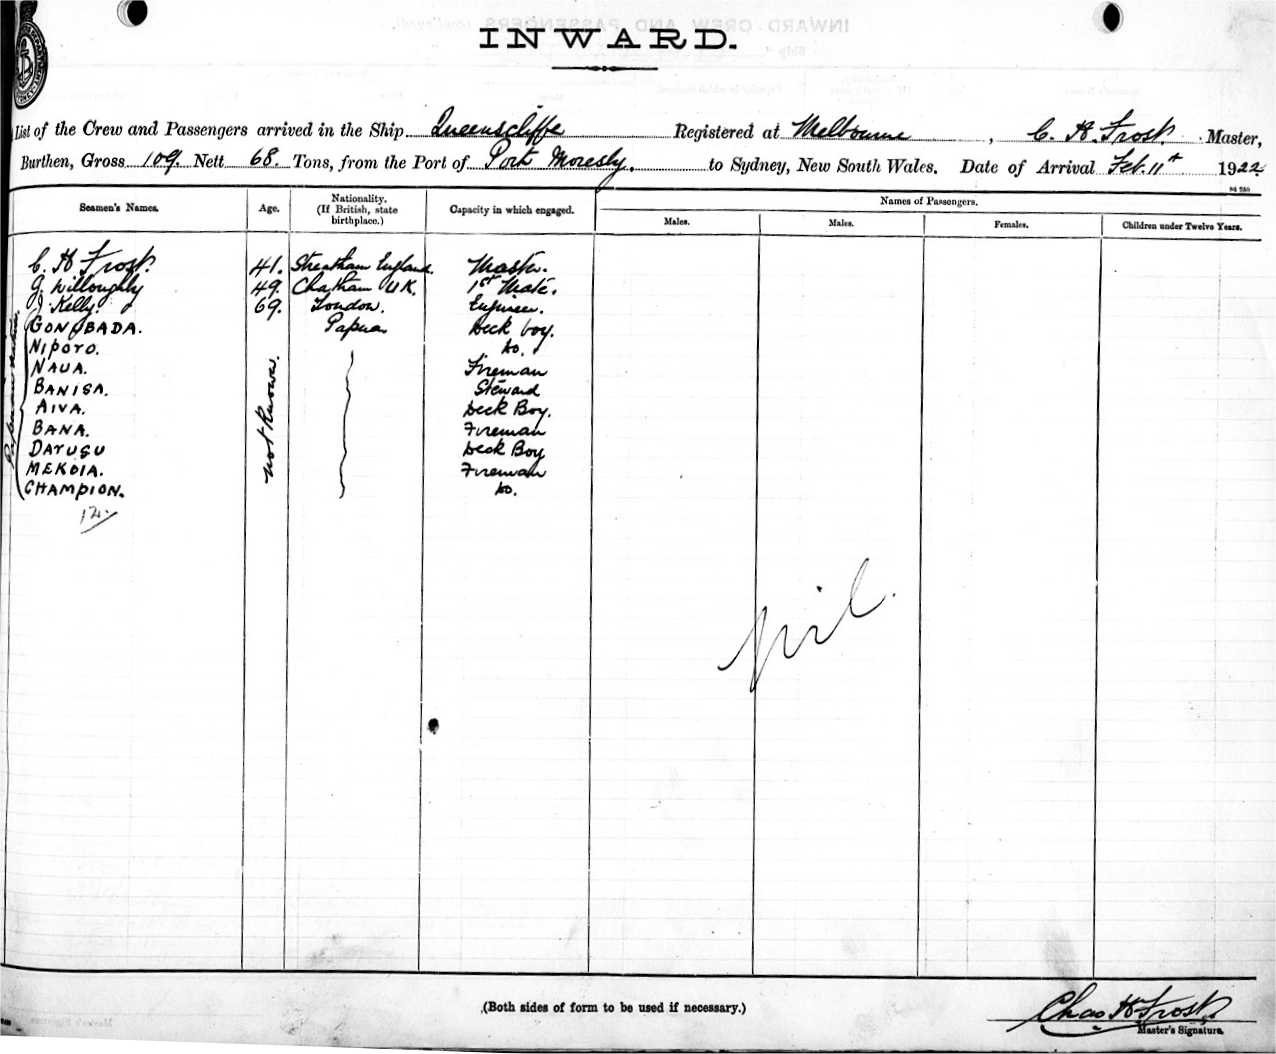 INWARD.
List of the Crew and Passengers arrived in the Ship Queenscliffe Registered at Melbourne, C. H. Frost. Master,
Burthen, Gross 109. Nett 68. Tons, from the Port of Port Moresby. to Sydney, New South Wales. Date of Arrival Feb. 11th 1922
Seamen's Names. Age. Nationality. (If British, state birthplace.) Capacity in which engaged. Names of Passengers.
Males. Males. Females. Children under Twelve Years.
C. H Frost. 41. Streatham England. Master.
J. Willoughby 49. Chatham U.K. 1st Mate.
J Kelly. 69. London. Engineer.
GONOBADA. Papua Deck boy.
NIPORO. do.
NAUA. Fireman
BANISA. Steward
AIVA. Deck Boy.
BANA. Fireman
DARUSU Deck Boy
MEKOIA. Fireman
CHAMPION. do.
not known.
12.
nil.
(Both sides of form to be used if necessary.)
Chas H Frost.
Master's Signature.